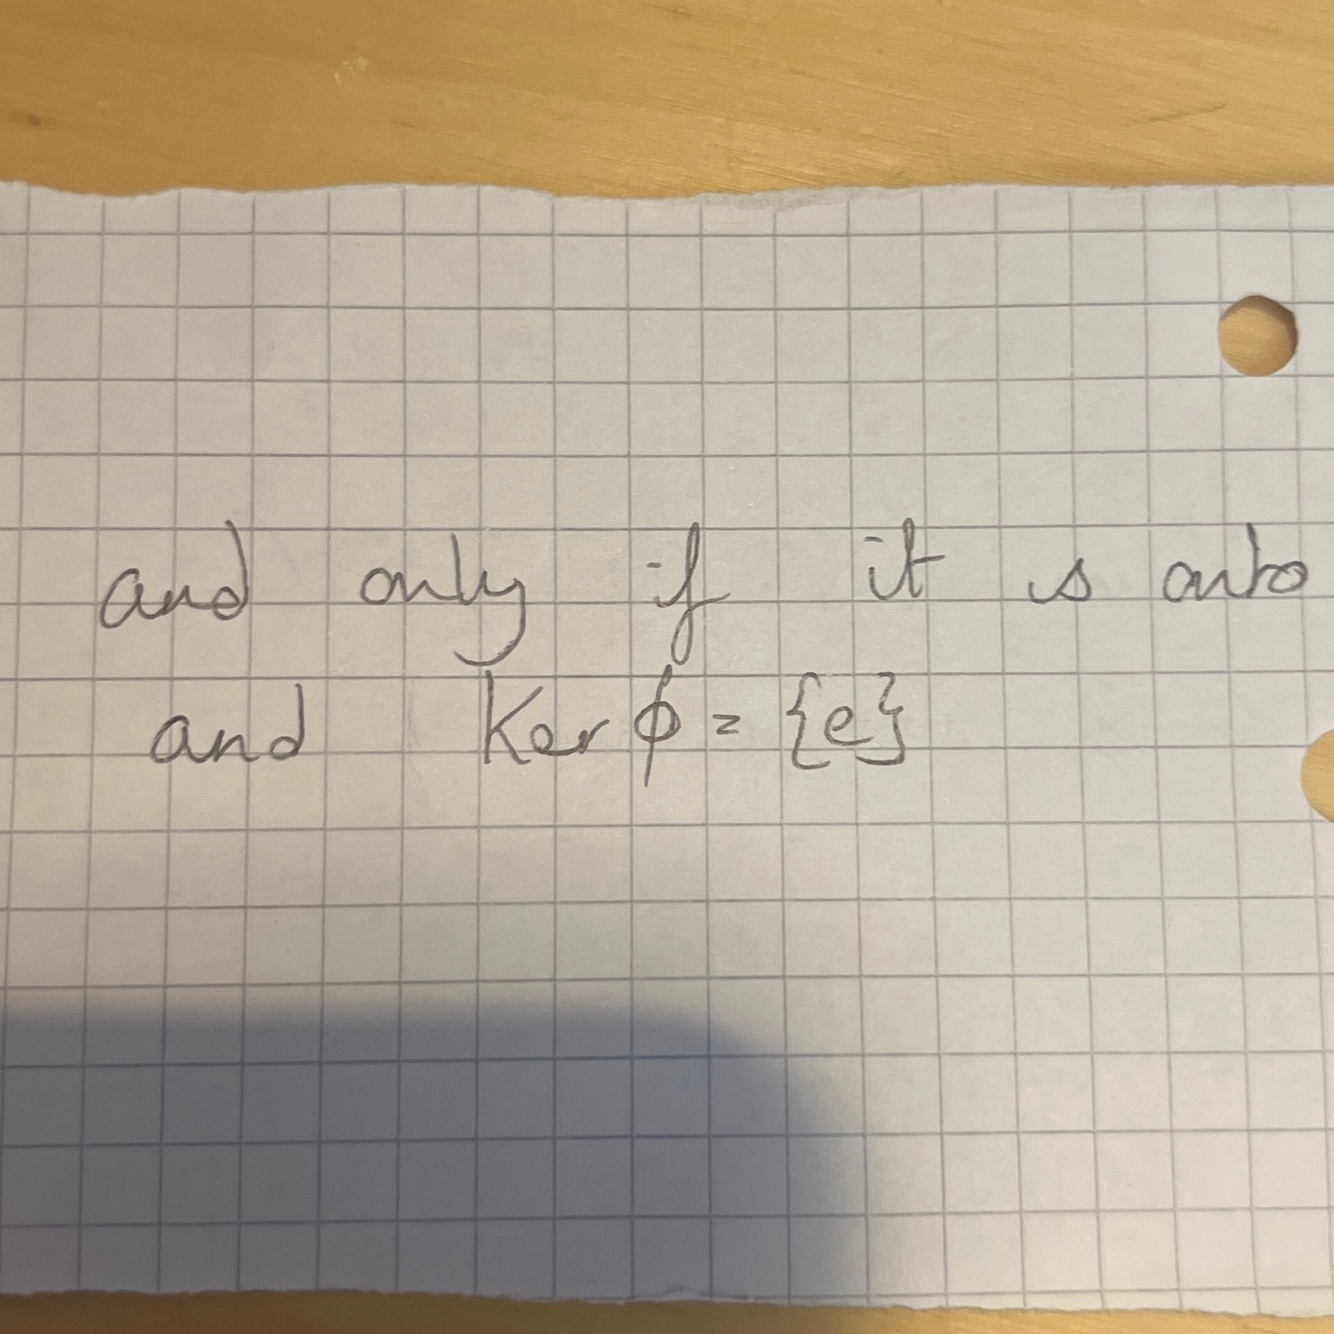 and only if it is onto
and Ker ϕ = {e}